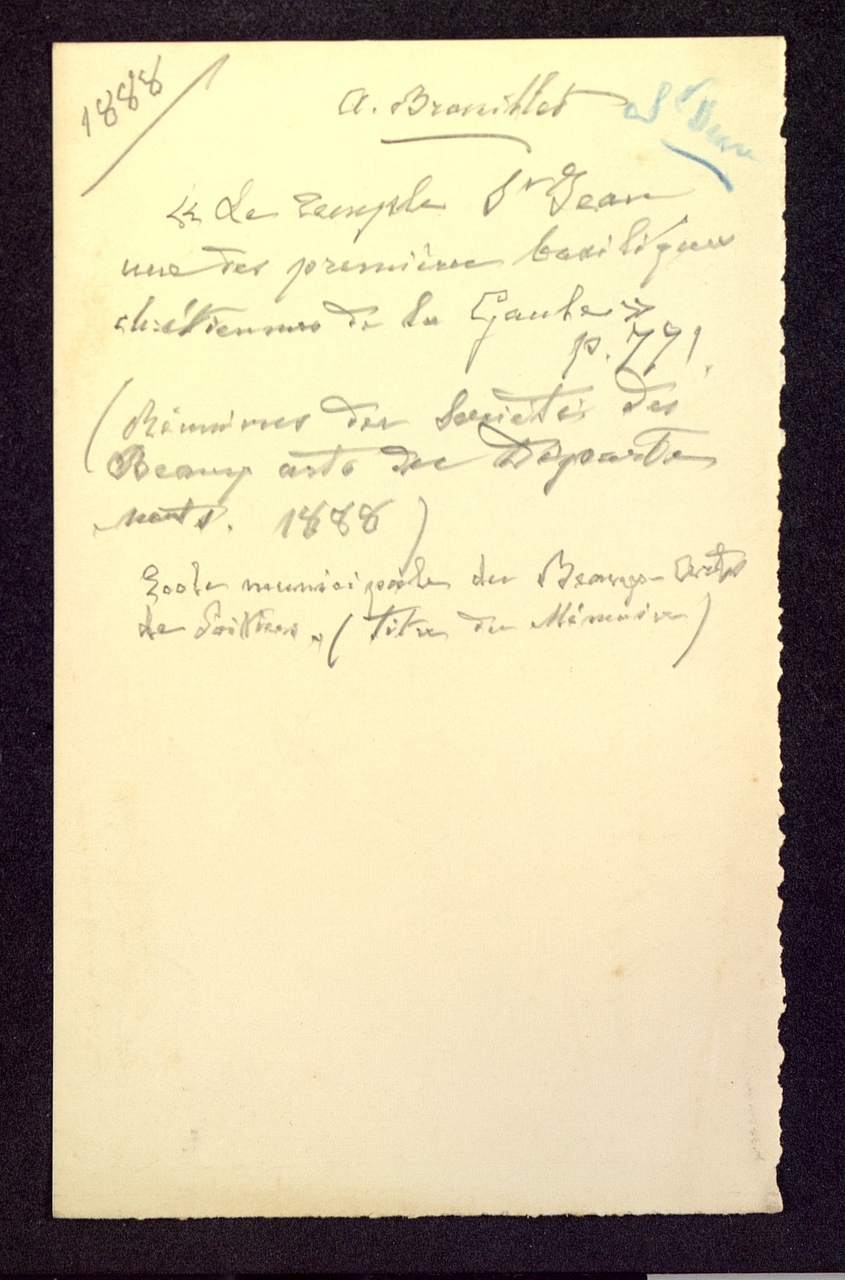 1888
A. Brouillet
St Jean
« Le Temple St Jean
une des premières basiliques
chrétiennes de la Gaule »
p. 771.
(Réunions des Sociétés des
Beaux arts des Départe
ments. 1888)
Ecole municipale des Beaux-Arts
de Poitiers. (Titre du Mémoire)